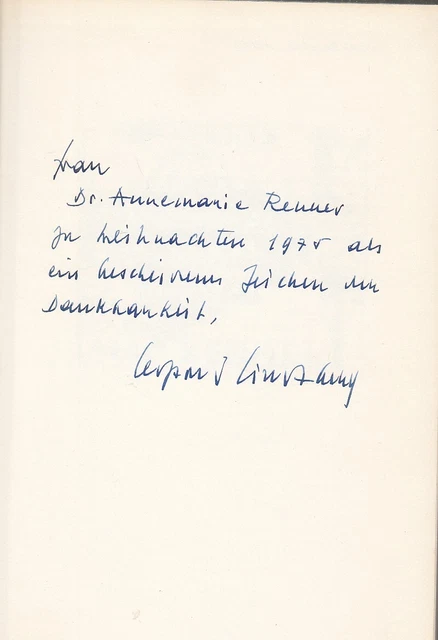 Frau
Dr. Annemarie Renner
zu Weihnachten 1975 als
ein bescheidenes Zeichen der
Dankbarkeit,
Leopold Lindtberg